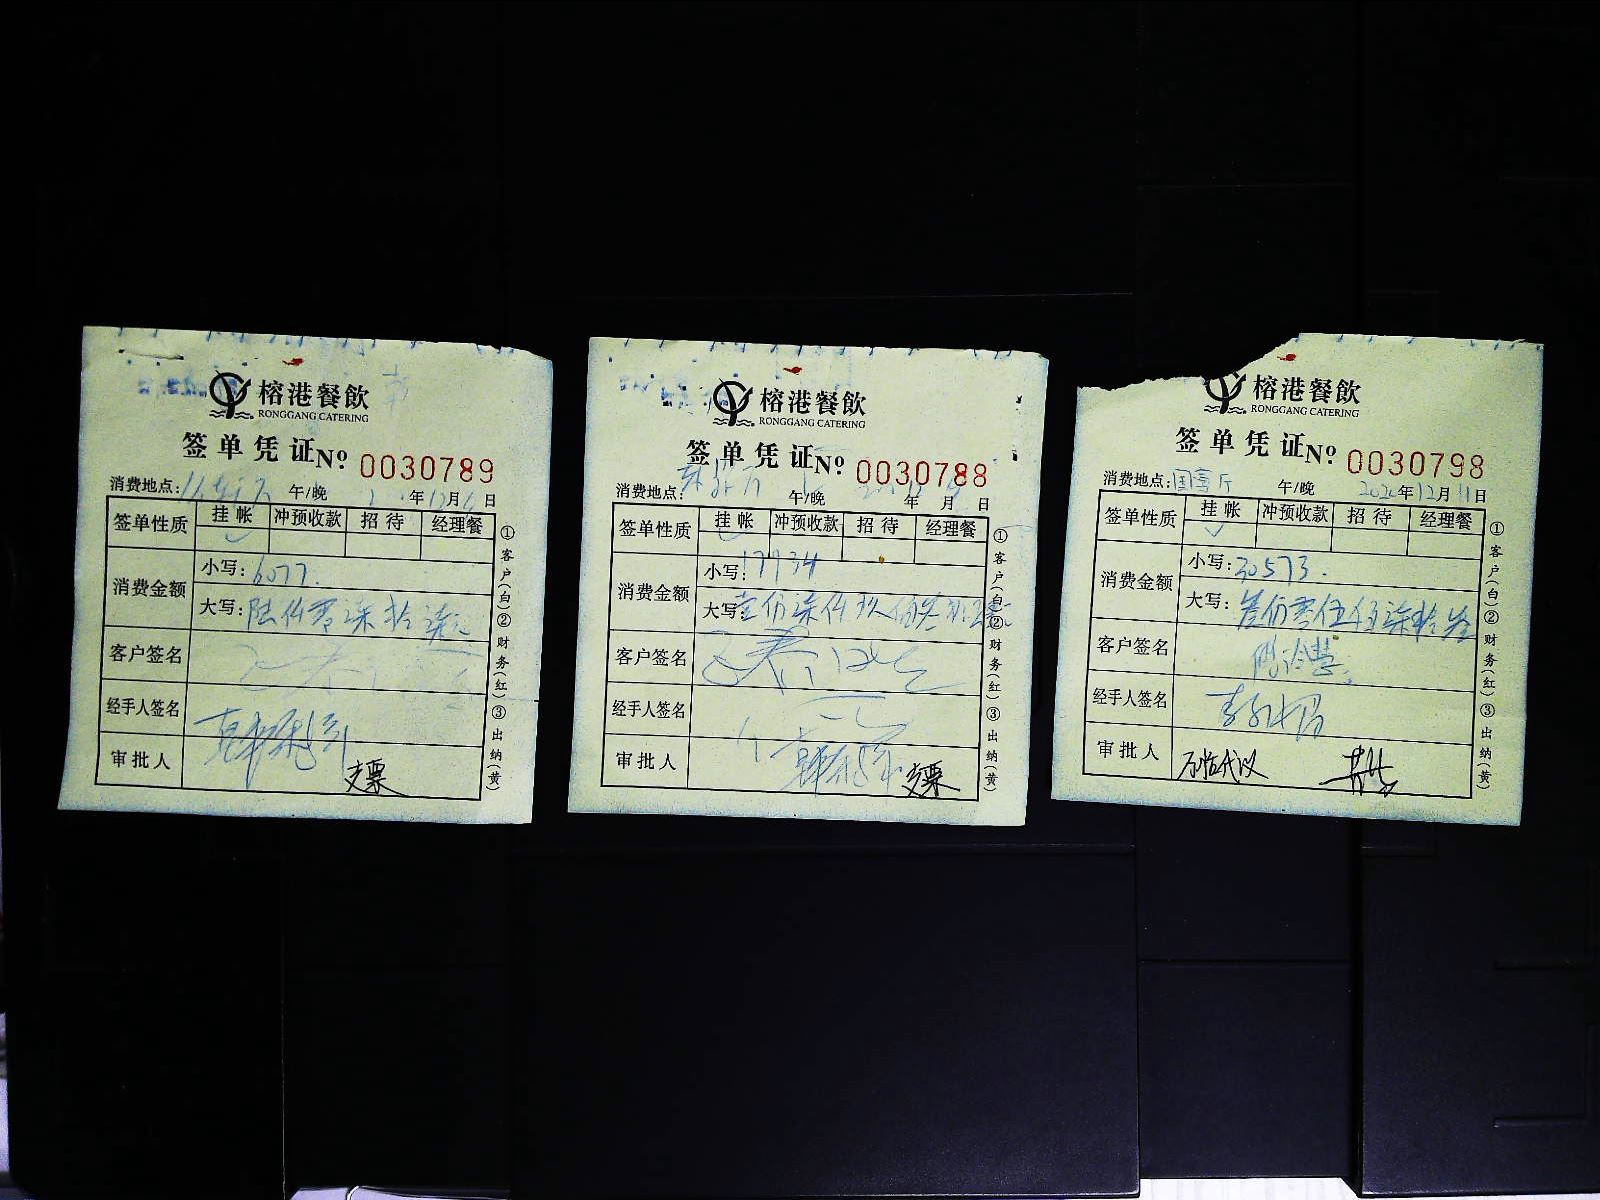 榕港餐飲
RONGGANG CATERING
签单凭证 Nº 0030789
消费地点: 午/晚 年12月6日
签单性质 挂帐 冲预收款 招待 经理餐
消费金额 小写: 6077.
大写: 陆仟零柒拾柒元
客户签名
经手人签名
审批人 支票
①客户(白)②财务(红)③出纳(黄)
榕港餐飲
RONGGANG CATERING
签单凭证 Nº 0030788
消费地点: 午/晚 年 月 日
签单性质 挂帐 冲预收款 招待 经理餐
消费金额 小写: 17934
大写: 壹万柒仟玖佰叁拾
客户签名
经手人签名
审批人 支票
①客户(白)②财务(红)③出纳(黄)
榕港餐飲
RONGGANG CATERING
签单凭证 Nº 0030798
消费地点: 国宴厅 午/晚 2020年12月11日
签单性质 挂帐 冲预收款 招待 经理餐
消费金额 小写: 30573.
大写: 叁万零伍佰柒拾叁
客户签名
经手人签名
审批人
①客户(白)②财务(红)③出纳(黄)